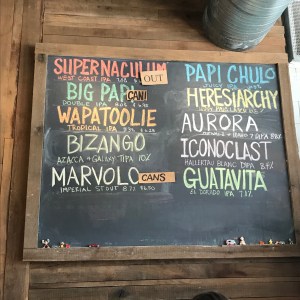 SUPERNACULUM
WEST COAST IPA
OUT
BIG PAPI
CANS
DOUBLE IPA
WAPATOOLIE
TROPICAL IPA
BIZANGO
AZACCA + GALAXY TIPA 10%
MARVOLO
CANS
IMPERIAL STOUT
PAPI CHULO
HERESIARCHY
AURORA
ICONOCLAST
HALLERTAU BLANC DIPA
GUATAVITA
EL DORADO IPA